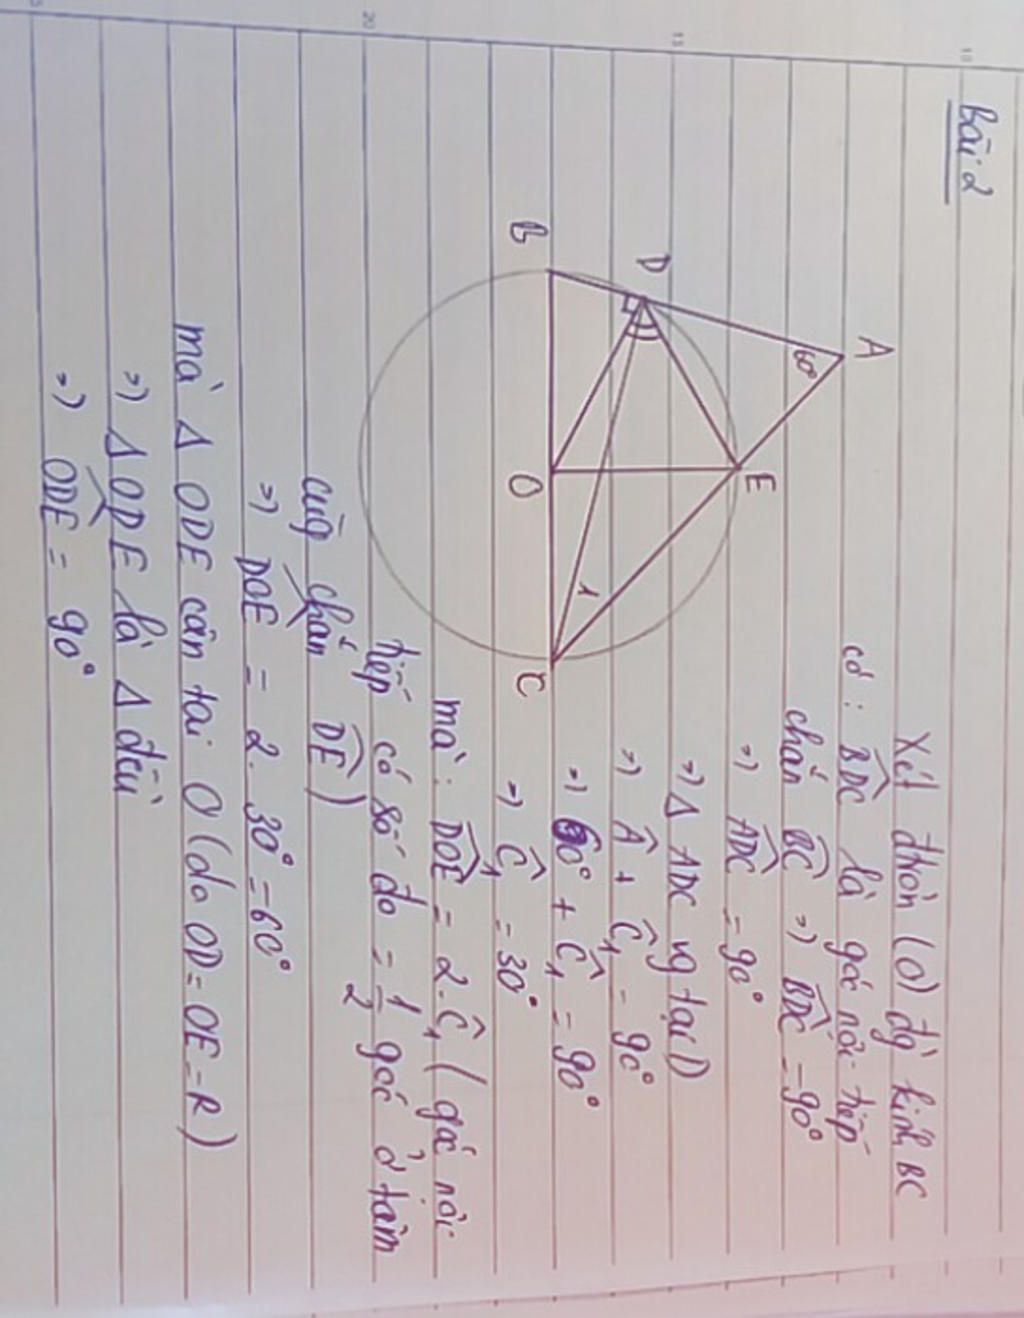 Bài 2
A
60°
D
E
B
O
C
1
Xét đtròn (O) đg kính BC
có : BDC là góc nội tiếp
chắn BC => BDC = 90°
=> ADC = 90°
=> Δ ADC vg tại D
=> Â + Ĉ₁ = 90°
=> 60° + Ĉ₁ = 90°
=> Ĉ₁ = 30°
mà : DOE = 2. Ĉ₁ ( góc nội
tiếp có số đo = 1/2 góc ở tâm
cùng chắn DE )
=> DOE = 2. 30° = 60°
mà Δ ODE cân tại O (do OD = OE = R)
=> Δ ODE là Δ đều
=> ODE = 90°
15
20